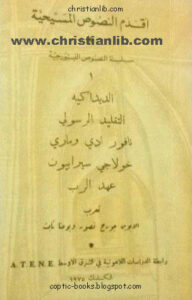 christian-books
www.christianlib.com
اقدم النصوص المسيحية
www.christianlib.com
سلسلة النصوص الليتورجية
١
الديداكيه
التقليد الرسولي
نافور أدي وماري
خولاجي سيرابيون
عهد الرب
تعريب
الابوين جورج نصور ويوحنا ثابت
رابطة الدراسات اللاهوتية في الشرق الاوسط A.T.E.N.E.
١٩٧٥
coptic-books.blogspot.com